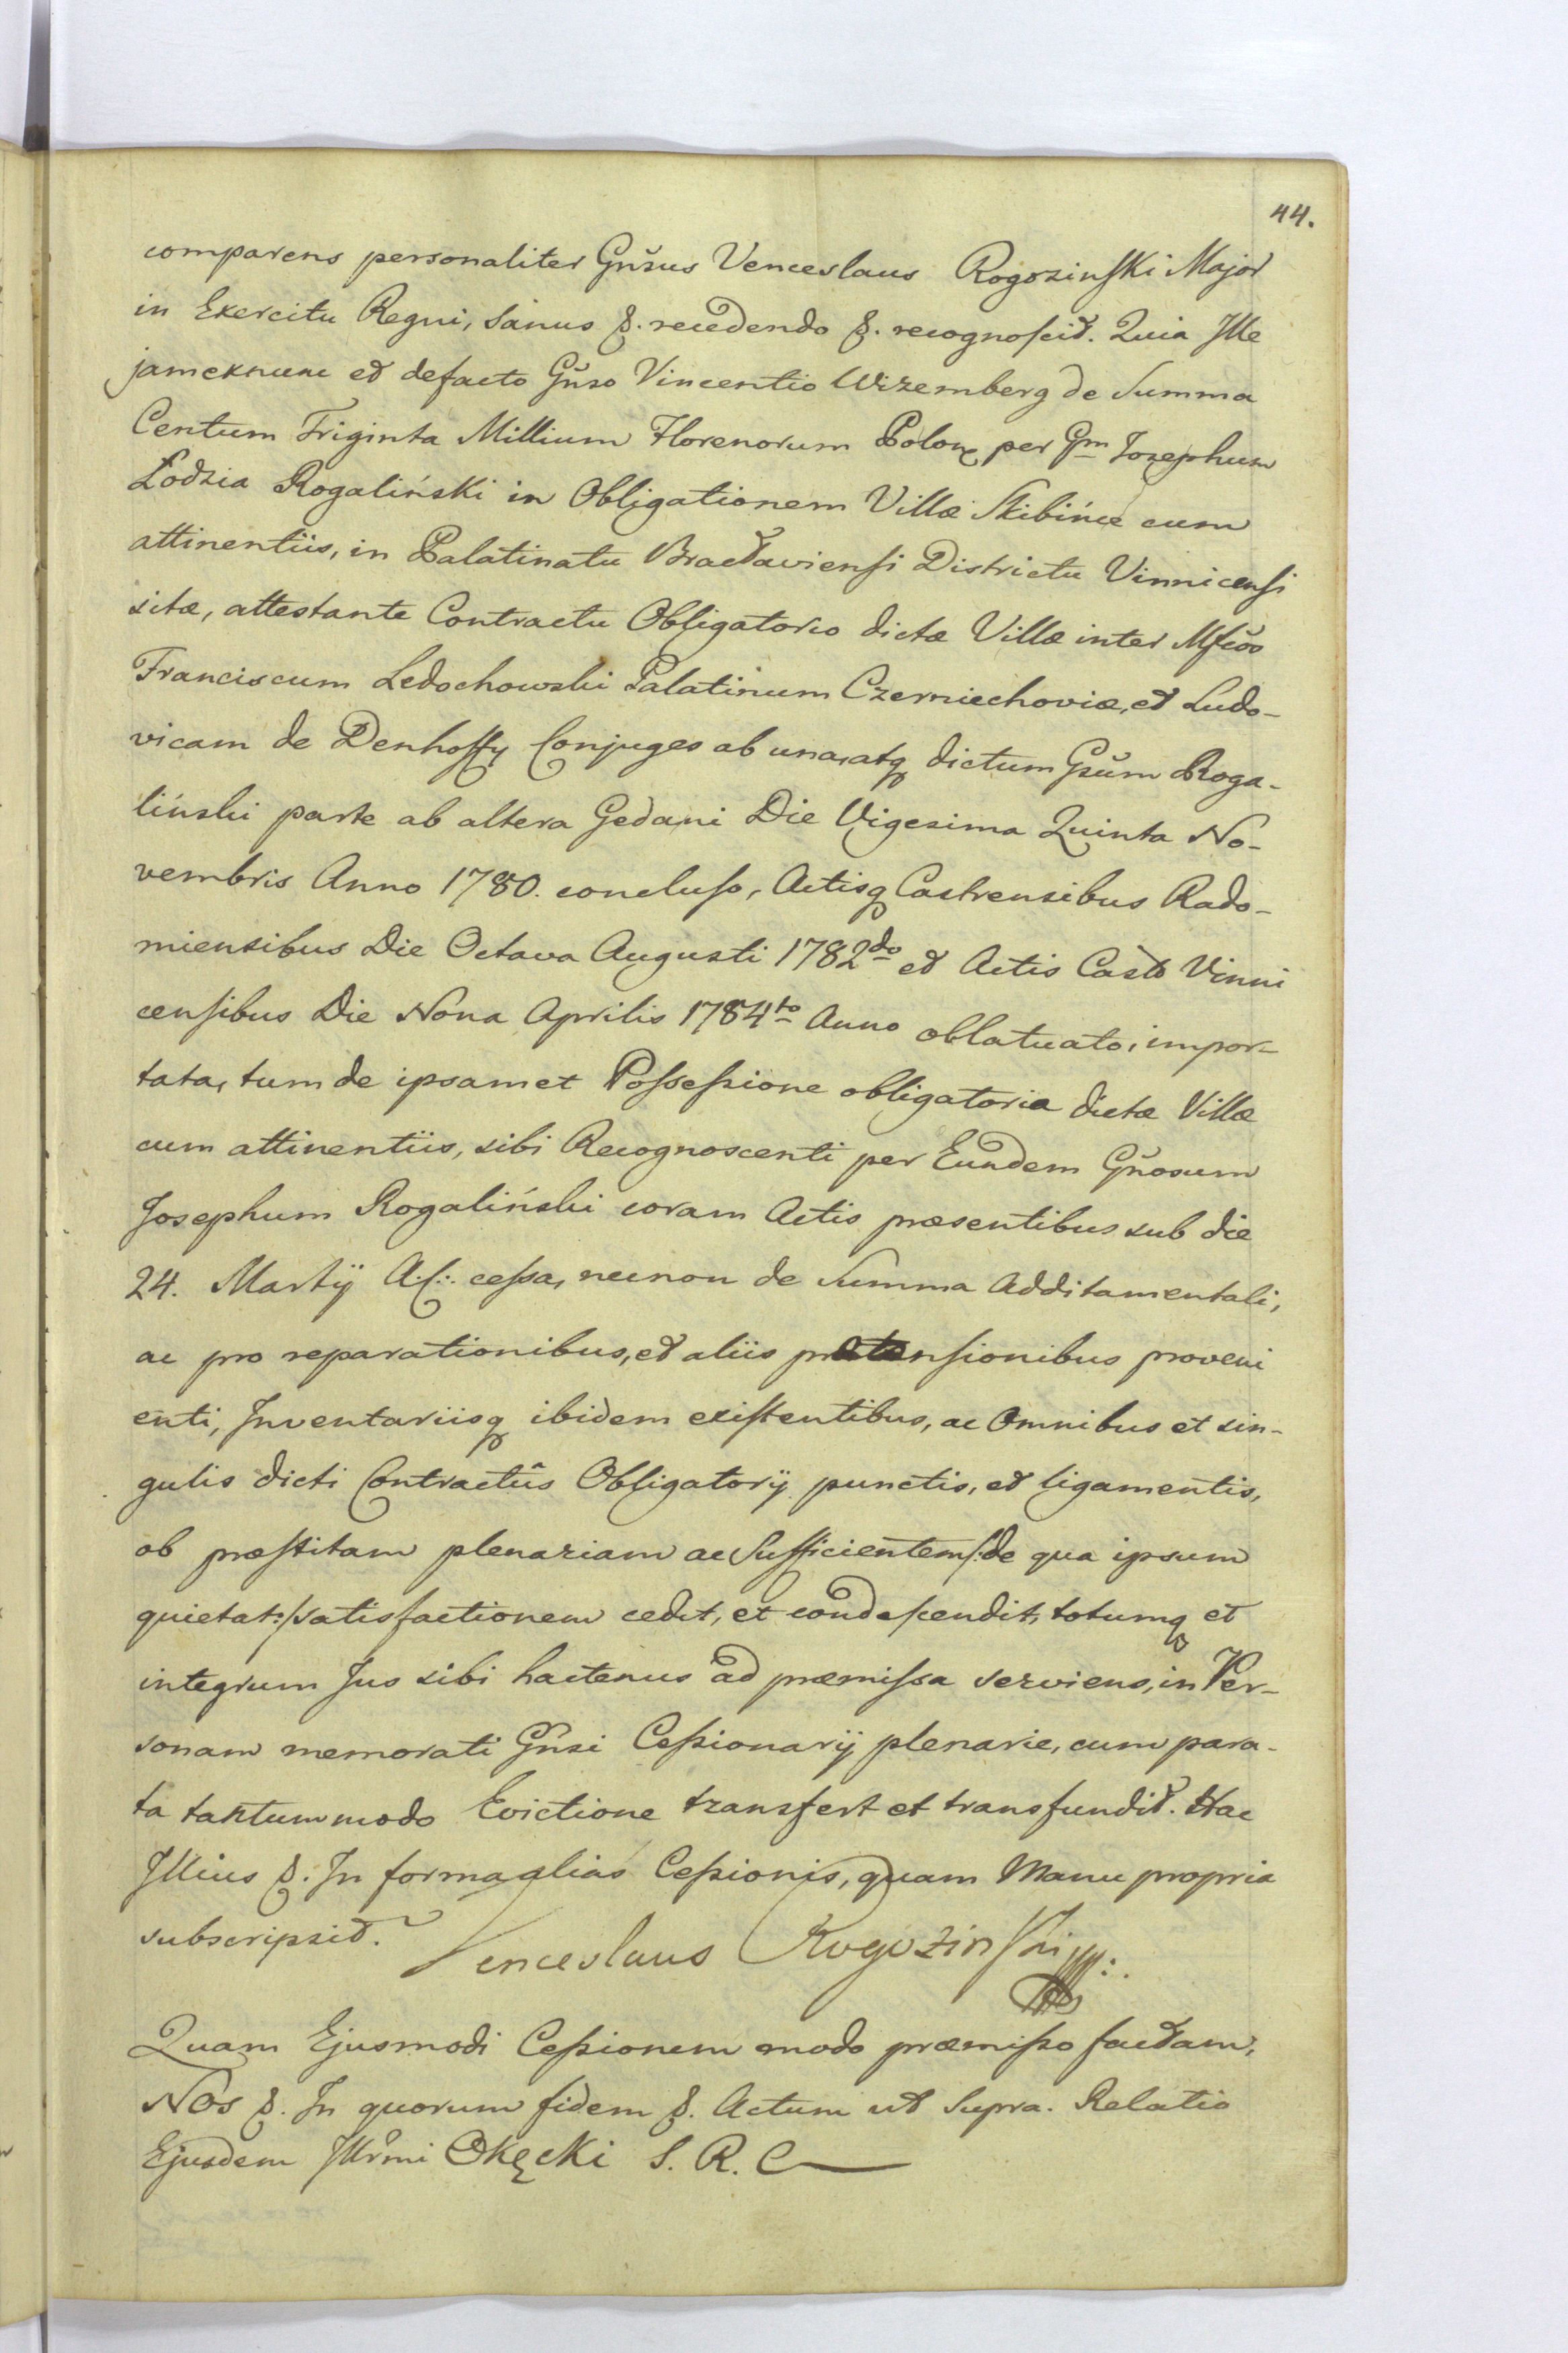 44.
comparens personaliter Gn̆sus Venceslaus Rogozinski Major
in Exercitu Regni, sanus &. recedendo &. recognoscit. Quia Ille
jamexnunc et defacto Gn̆so Vincentio Wizemberg de Summa
Centum Triginta Millium Florenorum Polon per Gm Jozephum
Łodzia Rogaliński in Obligationem Villæ Skibińce cum
attinentiis, in Palatinatu Bracłaviensi Districtu Vinnicensi
sitæ, attestante Contractu Obligatorio dictæ Villæ inter Mfcŏs
Franciscum Ledochowski Palatinum Czerniechoviæ, et Ludo-
vicam de Denhoffy Conjuges ab una, atq dictum Gsŭm Roga-
liński parte ab altera Gedani Die Vigesima Quinta No-
vembris Anno 1780. concluso, Actisq Castrensibus Rado-
miensibus Die Octava Augusti 1782do et Actis Casts Vinni
censibus Die Nona Aprilis 1784to Anno oblatuato, impor-
tata, tum de ipsamet Possessione obligatoria dictæ Villæ
cum attinentiis, sibi Recognoscenti per Eundem Gn̆osum
Josephum Rogaliński coram Actis præsentibus sub die
24. Martij A:C: cessa, necnon de Summa Additamentali,
ac pro reparationibus, et aliis prætensionibus proveni
enti, Inventariisq ibidem existentibus, ac Omnibus et sin-
gulis dicti Contractûs Obligatorij punctis, et ligamentis,
ob præstitam plenariam ac Sufficientem /:de qua ipsum
quietat:/ satisfactionem cedit, et condescendit, totumq et
integrum Jus sibi hactenus ad præmissa serviens, in Per-
sonam memorati Gn̆si Cessionarij plenarie, cum para-
ta tantummodo Evictione transfert et transfundit. Hac
Illius &. In forma alias Cessionis, quam Manu propria
subscripsit. Venceslaus Rogozinski
Quam Ejusmodi Cessionem modo præmisso factam,
Nos &. In quorum fidem &. Actum ut Supra. Relatio
Ejusdem Illr̆mi Okęcki S. R. C